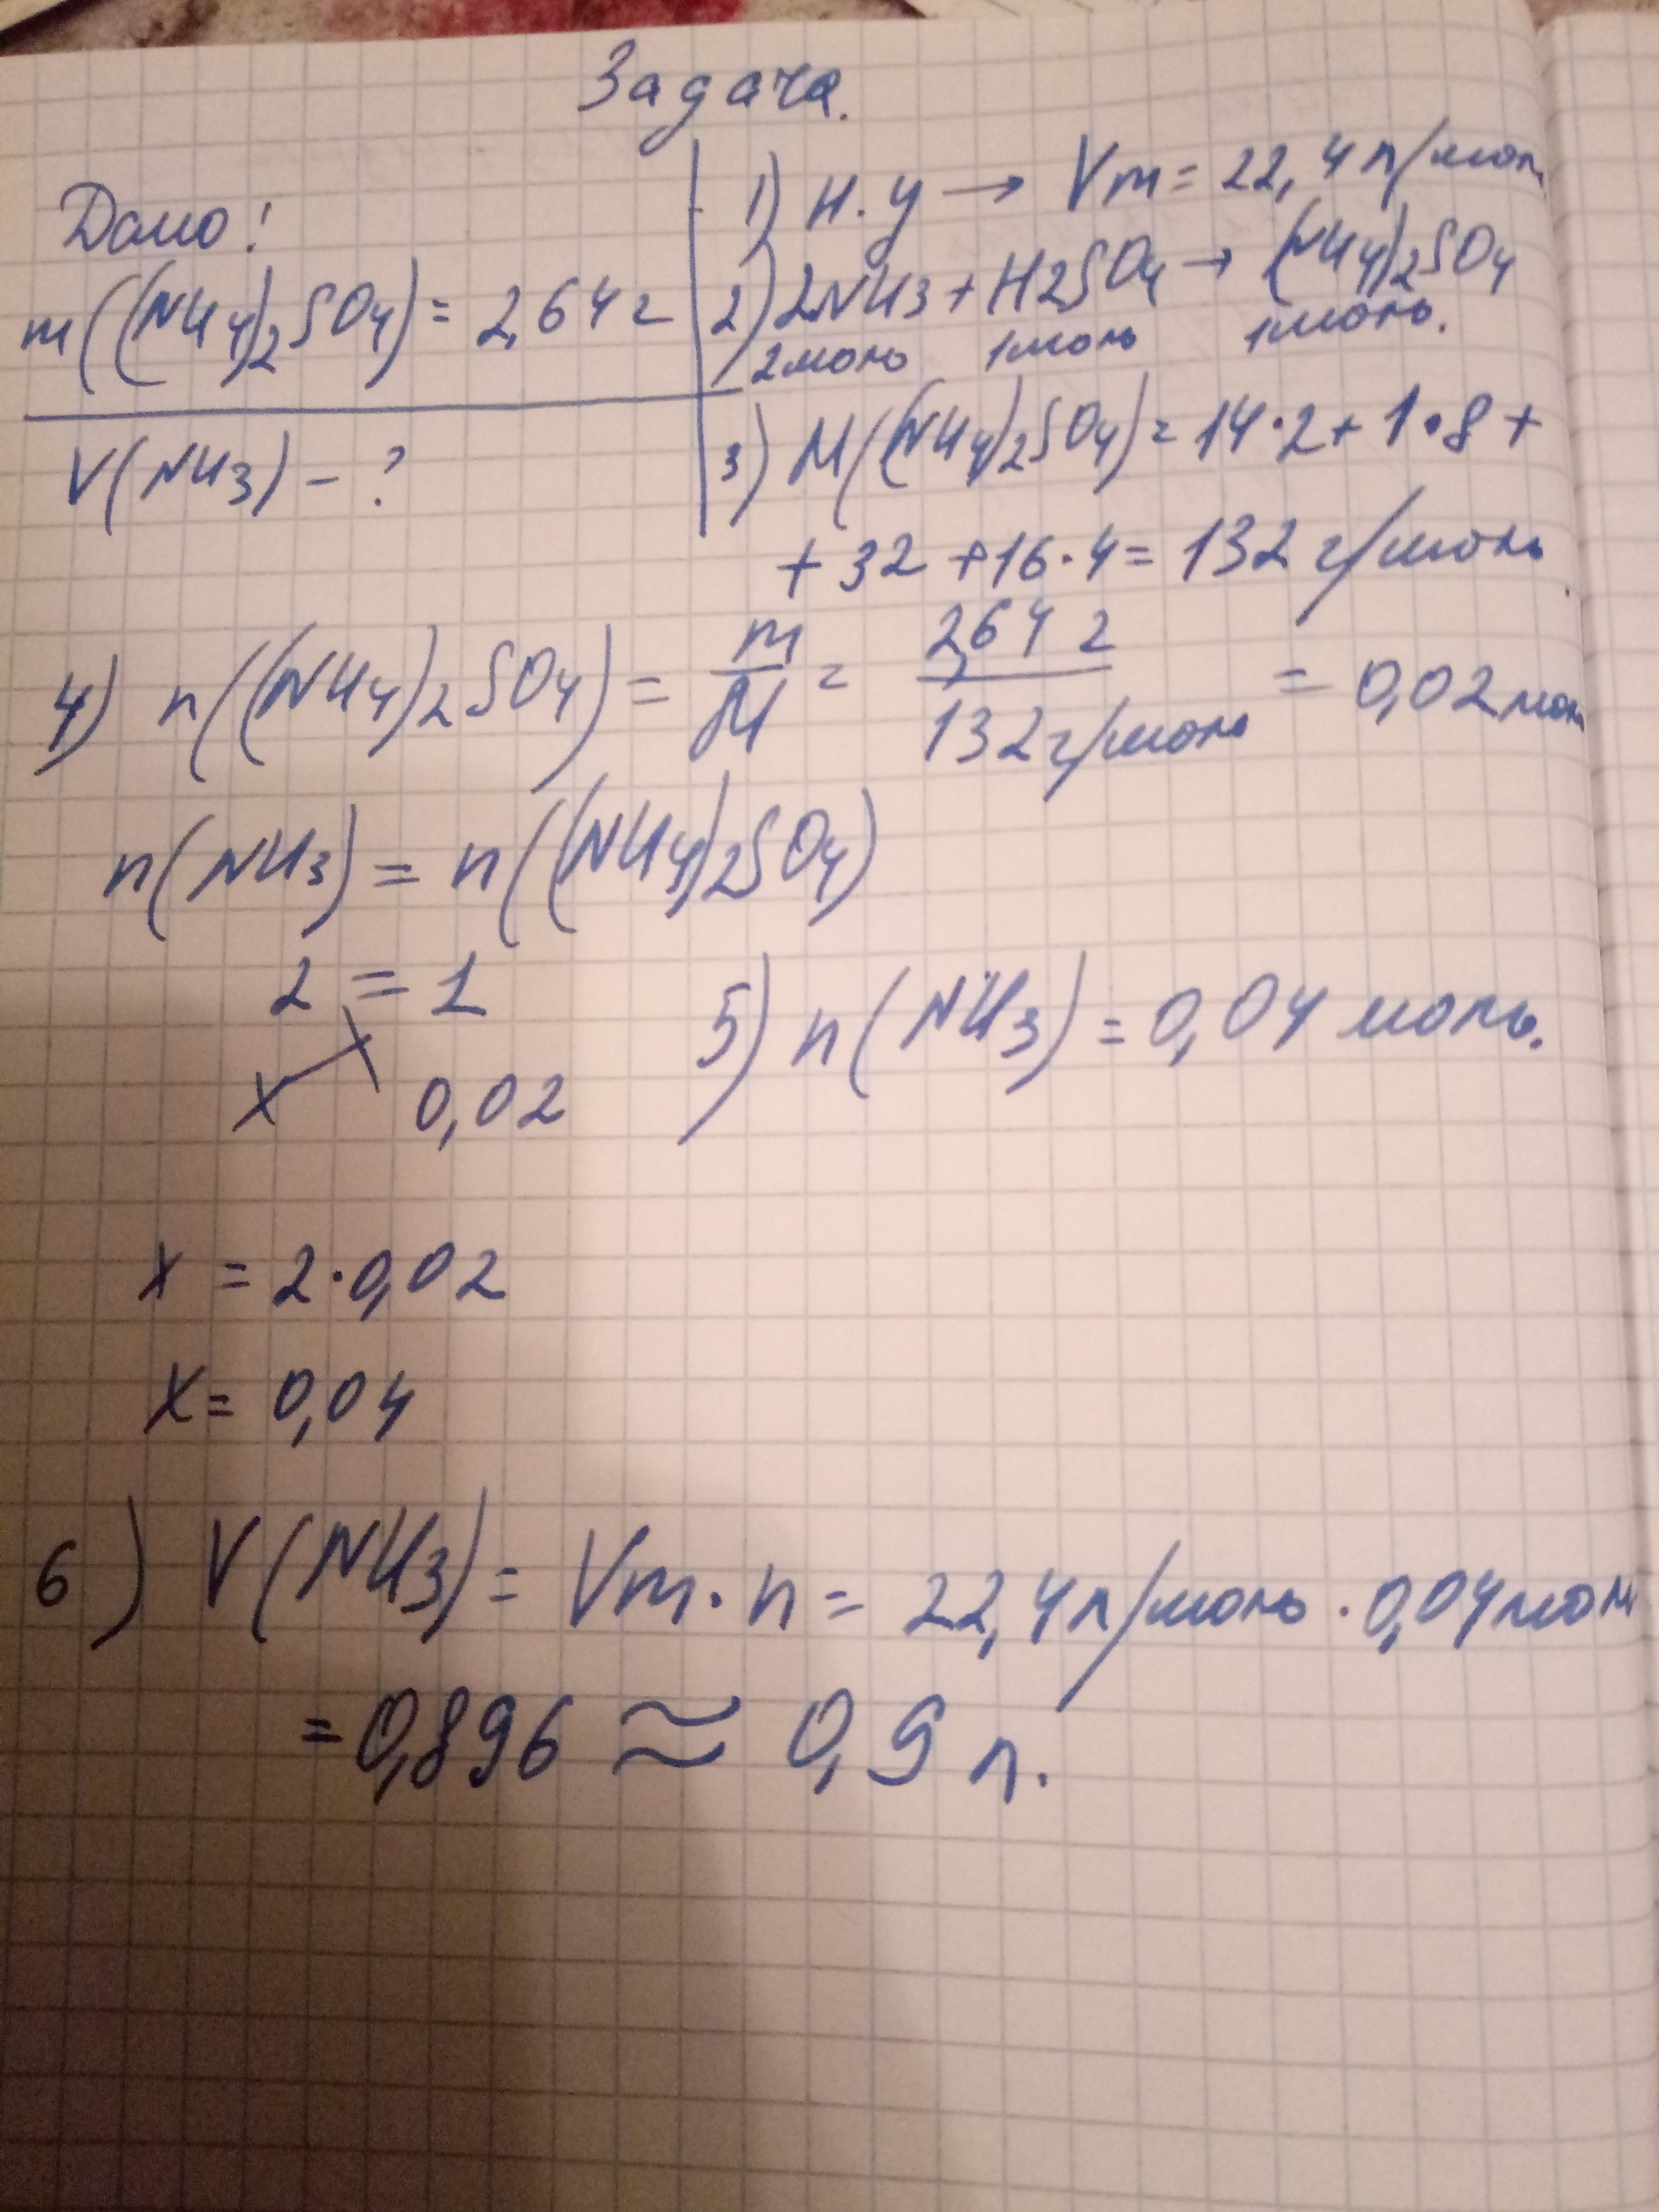 Задача.
Дано:
m((NH4)2SO4) = 2,64 г
V(NH3) - ?
1) Н.у → Vm = 22,4 л/моль
2) 2NH3 + H2SO4 → (NH4)2SO4
2моль 1моль 1моль.
3) M((NH4)2SO4) = 14·2 + 1·8 +
+ 32 + 16·4 = 132 г/моль
4) n((NH4)2SO4) = m/M = 2,64 г/132 г/моль = 0,02 моль
n(NH3) = n((NH4)2SO4)
2 = 1
x 0,02
5) n(NH3) = 0,04 моль.
x = 2·0,02
x = 0,04
6) V(NH3) = Vm·n = 22,4 л/моль · 0,04 моль
= 0,896 ≈ 0,9 л.